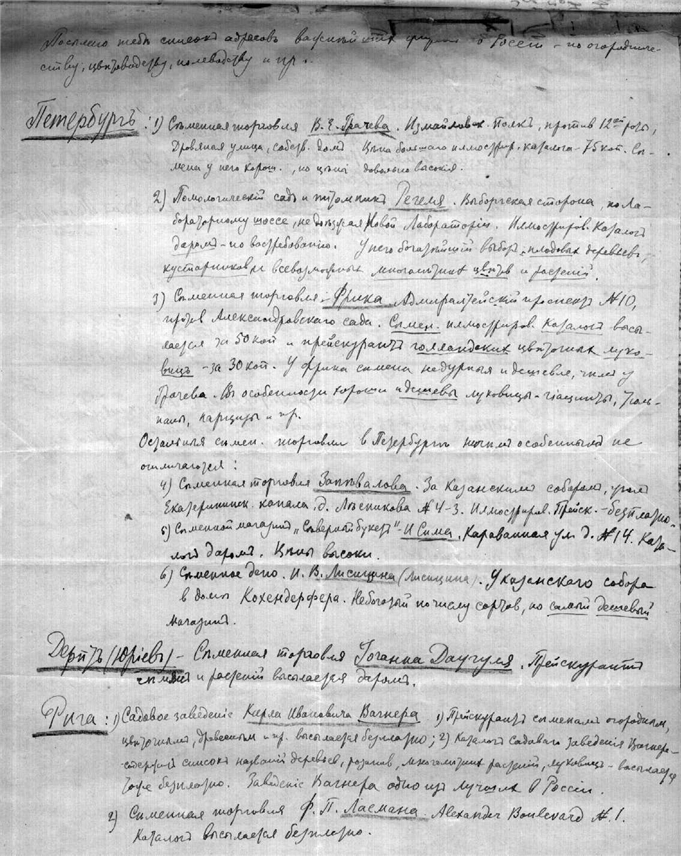 Посылаю тебѣ списокъ адресовъ важнѣйшихъ фирмъ въ Россіи – по огородниче-
ству, цвѣтоводству, полеводству и пр.
Петербургъ: 1) Сѣменная торговля В. Е. Грачева. Измайловск. Полкъ, противъ 12ой роты,
Дровяная улица, собств. домъ. Цѣна большаго иллюстрир. каталога – 75 коп. Сѣ-
мена у него хорош., но цѣны довольно высокія.
2) Помологическій садъ и питомникъ Регеля. Выборгская сторона, по Ла-
бораторному шоссе, не доѣзжая Новой Лабораторіи. Иллюстриров. каталогъ
даромъ – по востребованію. У него богатѣйшій выборъ плодовыхъ деревьевъ,
кустарниковъ и всевозможныхъ многолѣтнихъ цвѣтовъ и растеній.
3) Сѣменная торговля – Фрика. Адмиралтейскій проспектъ № 10,
против Александровского сада. Сѣмен. иллюстриров. каталогъ высы-
лается за 50 коп и прейскурантъ голландскихъ цвѣточныхъ луко-
вицъ – за 30 коп. У Фрика сѣмена недурныя и дешевле, чѣмъ у
Грачева. Въ особенности хороши и дешевы луковицы – гіацинты, тюль-
паны, нарцизы и пр.
Остальныя сѣмен. торговли в Петербургѣ ничѣмъ особеннымъ не
отличаются:
4) Сѣменная торговля Запѣвалова. За Казанскимъ соборомъ, уголъ
Екатерининск. канала д. Лѣсникова № 4-3. Иллюстриров. Прейск. – безплатно.
5) Сѣменной магазинъ „Сѣверный букетъ" – И Сима. Караванная ул. д. № 14. Ката-
логъ даромъ. Цѣны высоки.
6) Сѣменное депо. И. В. Лисицына (Лисицина). У Казанского собора
в домѣ Кохендерфера. Небогатый по числу сортовъ, но самый дешевый
магазинъ.
Дерптъ (Юрьевъ) – Сѣменная торговля Іоганна Даугуля. Прейскурантъ
сѣмянъ и растеній высылается даромъ.
Рига: 1) Садовое заведеніе Карла Ивановича Вагнера 1) Прейскурантъ сѣменамъ огороднымъ,
цвѣточнымъ, древеснымъ и пр. высылается безплатно; 2) Каталогъ садоваго заведенія Вагнера –
списокъ названій деревьевъ, розановъ, многолѣтнихъ растеній, луковицъ – высылается
тоже безплатно. Заведеніе Вагнера одно изъ лучшихъ в Россіи.
2) Сѣменная торговля Ф. П. Ласмана. Alexander Boulevard № 1.
Каталогъ высылается безплатно.